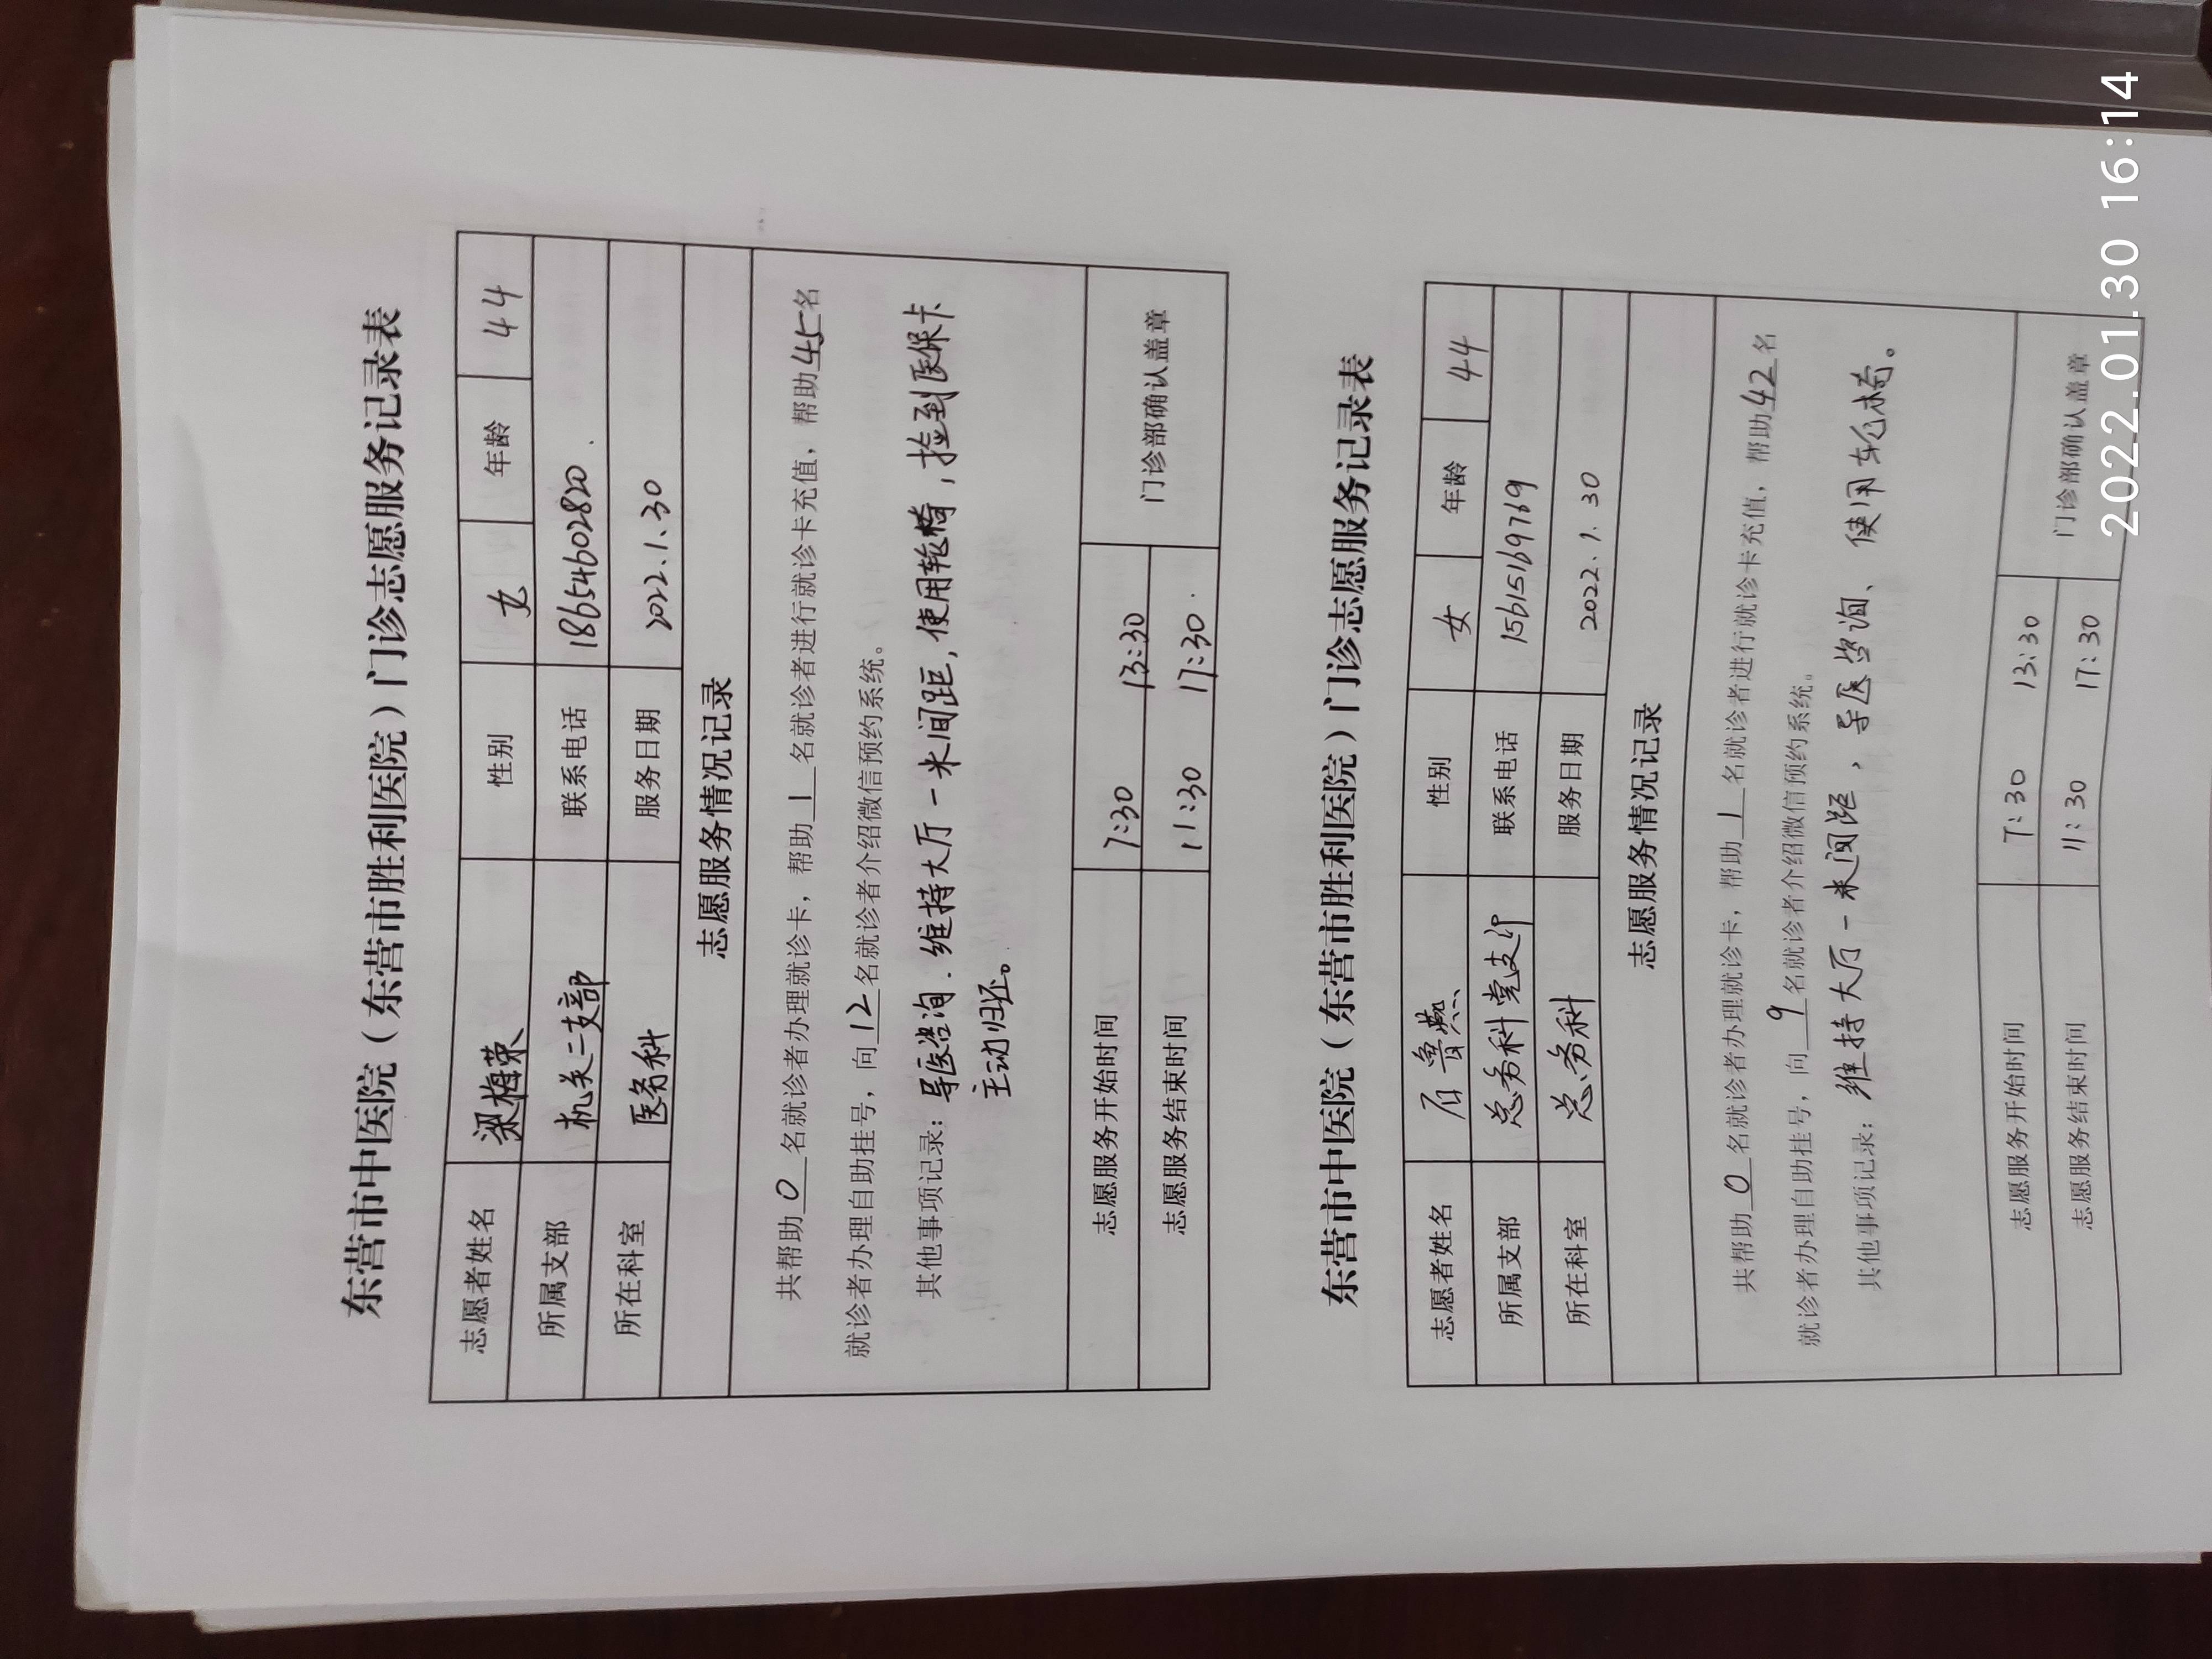 东营市中医院（东营市胜利医院）门诊志愿服务记录表
志愿者姓名 梁梅荣 性别 女 年龄 44
所属支部 机关二支部 联系电话 18654602820.
所在科室 医务科 服务日期 2022.1.30
志愿服务情况记录
共帮助0名就诊者办理就诊卡，帮助1名就诊者进行就诊卡充值，帮助45名
就诊者办理自助挂号，向12名就诊者介绍微信预约系统。
其他事项记录：导医咨询.维持大厅一米间距,使用轮椅，捡到医保卡
主动归还。
志愿服务开始时间 7:30 13:30 门诊部确认盖章
志愿服务结束时间 11:30 17:30.
东营市中医院（东营市胜利医院）门诊志愿服务记录表
志愿者姓名 石鲁燕 性别 女 年龄 44
所属支部 总务科党支部 联系电话 15615169769
所在科室 总务科 服务日期 2022.1.30
志愿服务情况记录
共帮助0名就诊者办理就诊卡，帮助1名就诊者进行就诊卡充值，帮助42名
就诊者办理自助挂号，向9名就诊者介绍微信预约系统。
其他事项记录：维持大厅一米间距，导医咨询、使用轮椅。
志愿服务开始时间 7:30 13:30 门诊部确认盖章
志愿服务结束时间 11:30 17:30
2022.01.30 16:14